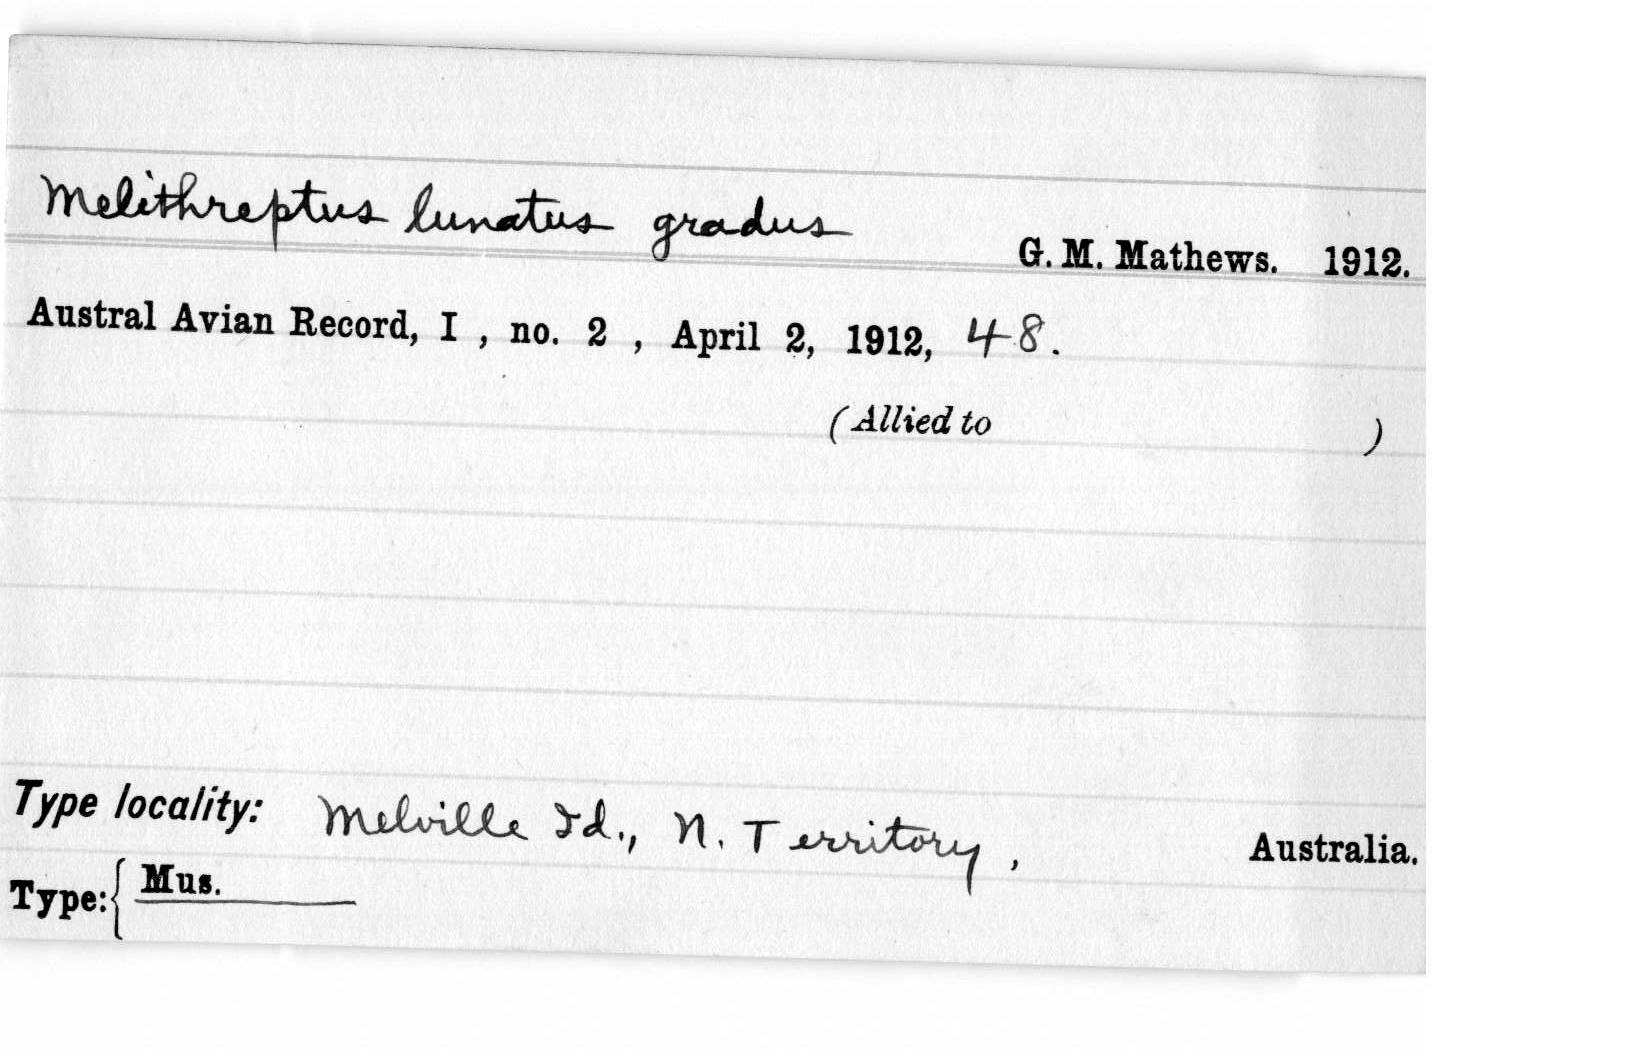 Melithreptus lunatus gradus G. M. Mathews. 1912.
Austral Avian Record, I , no. 2 , April 2, 1912, 48.
(Allied to )
Type locality: Melville Id., N. Territory, Australia.
Type: { Mus.